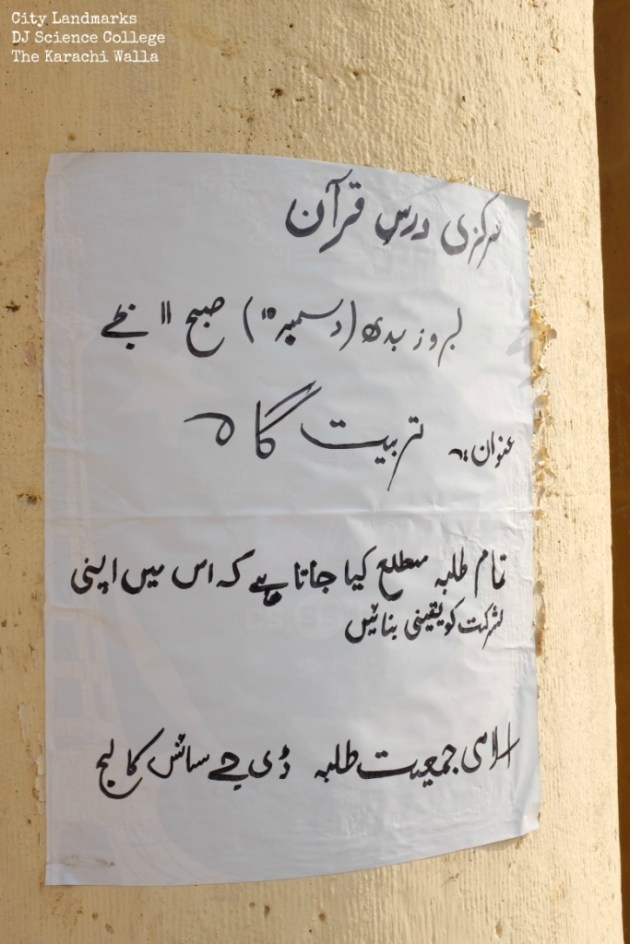 City Landmarks
DJ Science College
The Karachi Walla
مرکزی درس قرآن
بروز بدھ (دسمبر ۱۵) صبح ۱۱ بجے
عنوان:۔ تربیت گاہ
تمام طلبہ مطلع کیا جاتا ہے کہ اس میں اپنی
شرکت کو یقینی بنائیں
اسلامی جمعیت طلبہ ڈی جے سائنس کالج